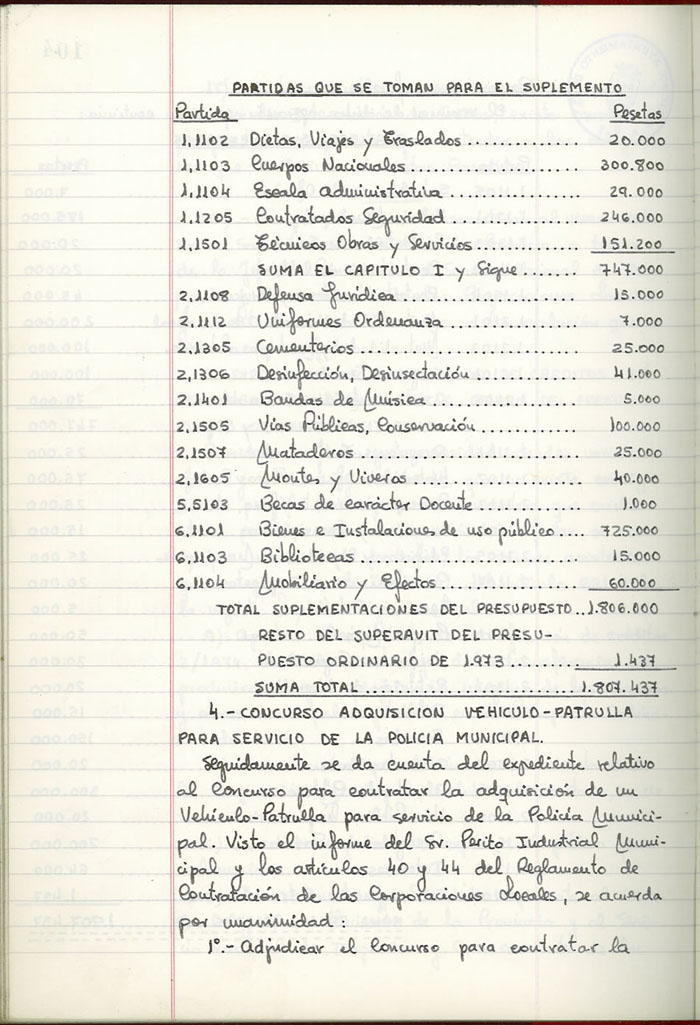 PARTIDAS QUE SE TOMAN PARA EL SUPLEMENTO
Partida Pesetas
1,1102 Dietas, Viajes y Traslados.............. 20.000
1,1103 Cuerpos Nacionales..................... 300.800
1,1104 Escala Administrativa................ 29.000
1,1205 Contratados Seguridad................ 246.000
1,1501 Técnicos Obras y Servicios............. 151.200
SUMA EL CAPITULO I y Sigue....... 747.000
2,1108 Defensa Jurídica...................... 15.000
2,1112 Uniformes Ordenanza................ 7.000
2,1305 Cementerios........................... 25.000
2,1306 Desinfección, Desinsectación............. 41.000
2,1401 Bandas de Música.................. 5.000
2,1505 Vías Públicas, Conservación............ 100.000
2,1507 Mataderos........................... 25.000
2,1605 Montes y Viveros..................... 40.000
5,5103 Becas de carácter Docente............. 1.000
6,1101 Bienes e Instalaciones de uso público.... 725.000
6,1103 Bibliotecas........................... 15.000
6,1104 Mobiliario y Efectos.................. 60.000
TOTAL SUPLEMENTACIONES DEL PRESUPUESTO..1.806.000
RESTO DEL SUPERAVIT DEL PRESU-
PUESTO ORDINARIO DE 1.973.......... 1.437
SUMA TOTAL........................ 1.807.437
4.- CONCURSO ADQUISICION VEHICULO-PATRULLA
PARA SERVICIO DE LA POLICIA MUNICIPAL.
Seguidamente se da cuenta del expediente relativo
al Concurso para contratar la adquisición de un
Vehículo-Patrulla para servicio de la Policía Munici-
pal. Visto el informe del Sr. Perito Industrial Muni-
cipal y los artículos 40 y 44 del Reglamento de
Contratación de las Corporaciones Locales, se acuerda
por unanimidad:
1º.- Adjudicar el Concurso para contratar la